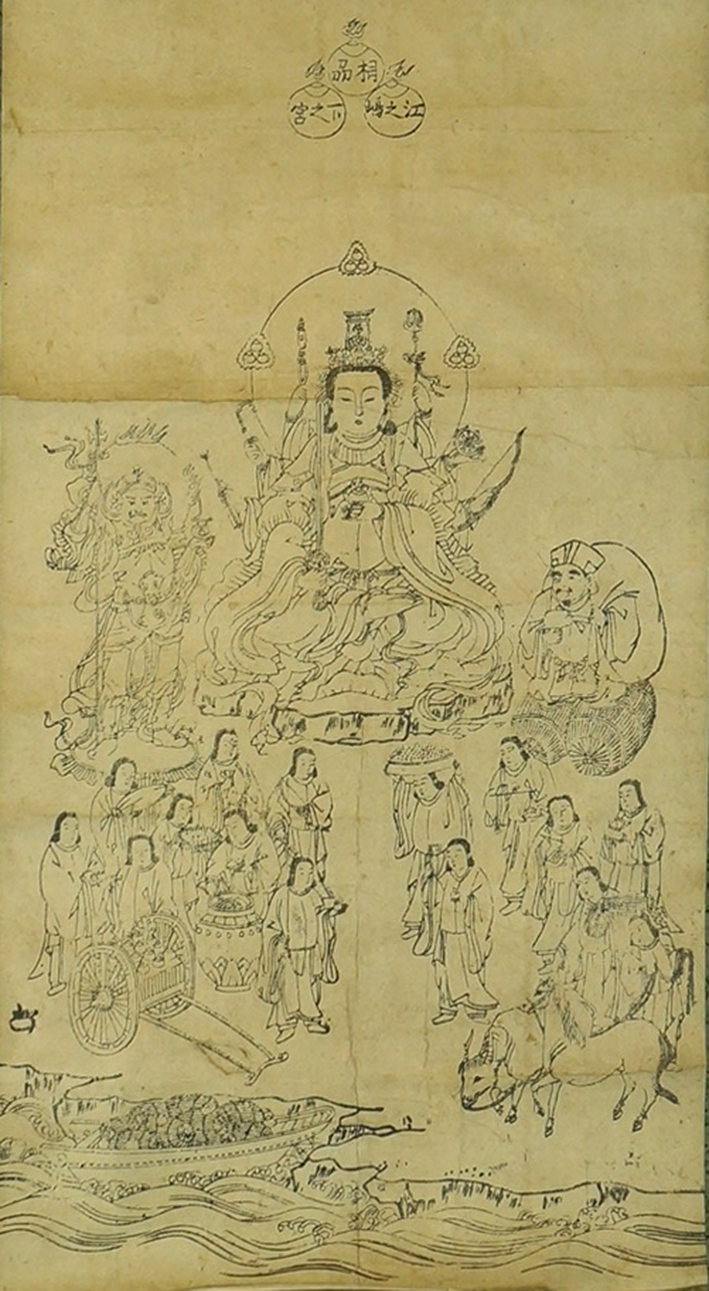 相刕
江之嶋
下之宮